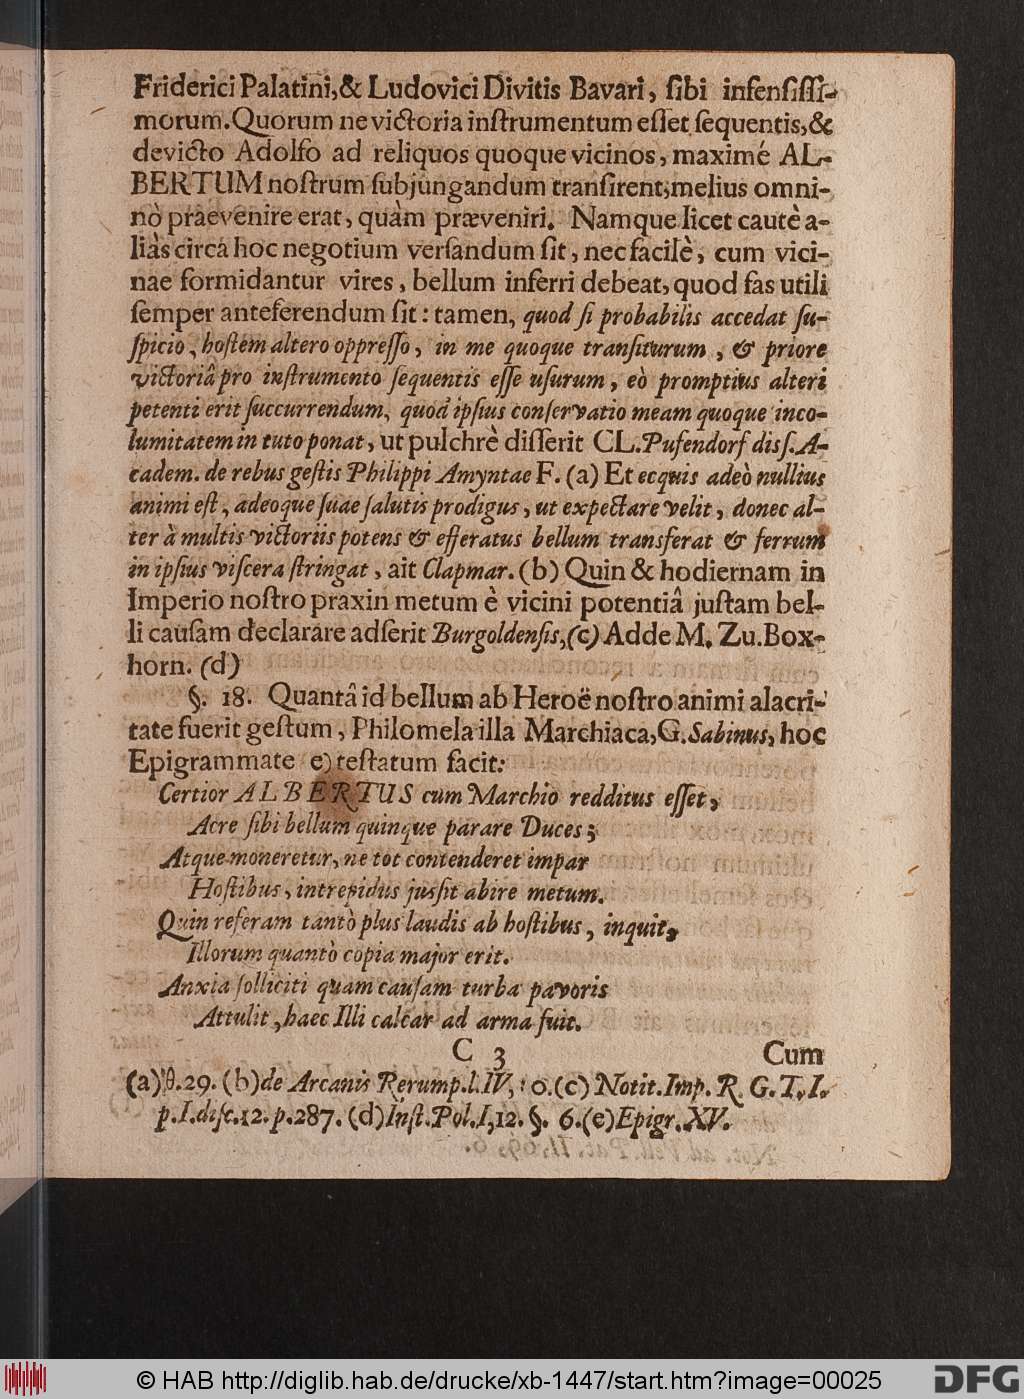 Friderici Palatini,& Ludovici Divitis Bavari, ſibi infenſiſſi-
morum.Quorum ne victoria inſtrumentum eſſet ſequentis,&
devicto Adolfo ad reliquos quoque vicinos, maximé AL-
BERTUM noſtrum ſubjungandum tranſirent;melius omni-
nò praevenire erat, quàm præveniri. Namque licet cautè a-
liàs circá hoc negotium verſandum ſit, nec facilè, cum vici-
nae formidantur vires, bellum inferri debeat, quod fas utili
ſemper anteferendum ſit: tamen, quod ſi probabilis accedat ſu-
ſpicio, hoſtem altero oppreſſo, in me quoque tranſiturum, & priore
victoriâ pro inſtrumento ſequentis eſſe uſurum, eò promptius alteri
petenti erit ſuccurrendum, quod ipſius conſervatio meam quoque inco-
lumitatem in tuto ponat, ut pulchrè diſſerit CL.Pufendorf diſſ.A-
cadem. de rebus geſtis Philippi Amyntae F. (a) Et ecquis adeò nullius
animi eſt, adeoque ſuae ſalutis prodigus, ut expectare velit, donec al-
ter à multis victoriis potens & efferatus bellum transferat & ferrum
in ipſius viſcera ſtringat, ait Clapmar. (b) Quin & hodiernam in
Imperio noſtro praxin metum è vicini potentiâ juſtam bel-
li cauſam declarare adſerit Burgoldenſis,(c) Adde M. Zu.Box-
horn. (d)
§. 18. Quantâ id bellum ab Heroë noſtro animi alacri-
tate fuerit geſtum, Philomela illa Marchiaca,G.Sabinus, hoc
Epigrammate e) teſtatum facit:
Certior ALBERTUS cum Marchio redditus eſſet,
Acre ſibi bellum quinque parare Duces;
Atque moneretur, ne tot contenderet impar
Hoſtibus, intrepidus juſſit abire metum.
Quin referam tantò plus laudis ab hoſtibus, inquit,
Illorum quantò copia major erit.
Anxia ſolliciti quam cauſam turba pavoris
Attulit, haec Illi calcar ad arma fuit.
C 3 Cum
(a) .29. (b)de Arcanis Rerump.l.IV, (c) Notit.Imp. R. G. T.I.
p.I.diſc.12.p.287. (d)Inſt.Pol.I,12. §. 6.(e)Epigr.XV.
© HAB http://diglib.hab.de/drucke/xb-1447/start.htm?image=00025
DFG